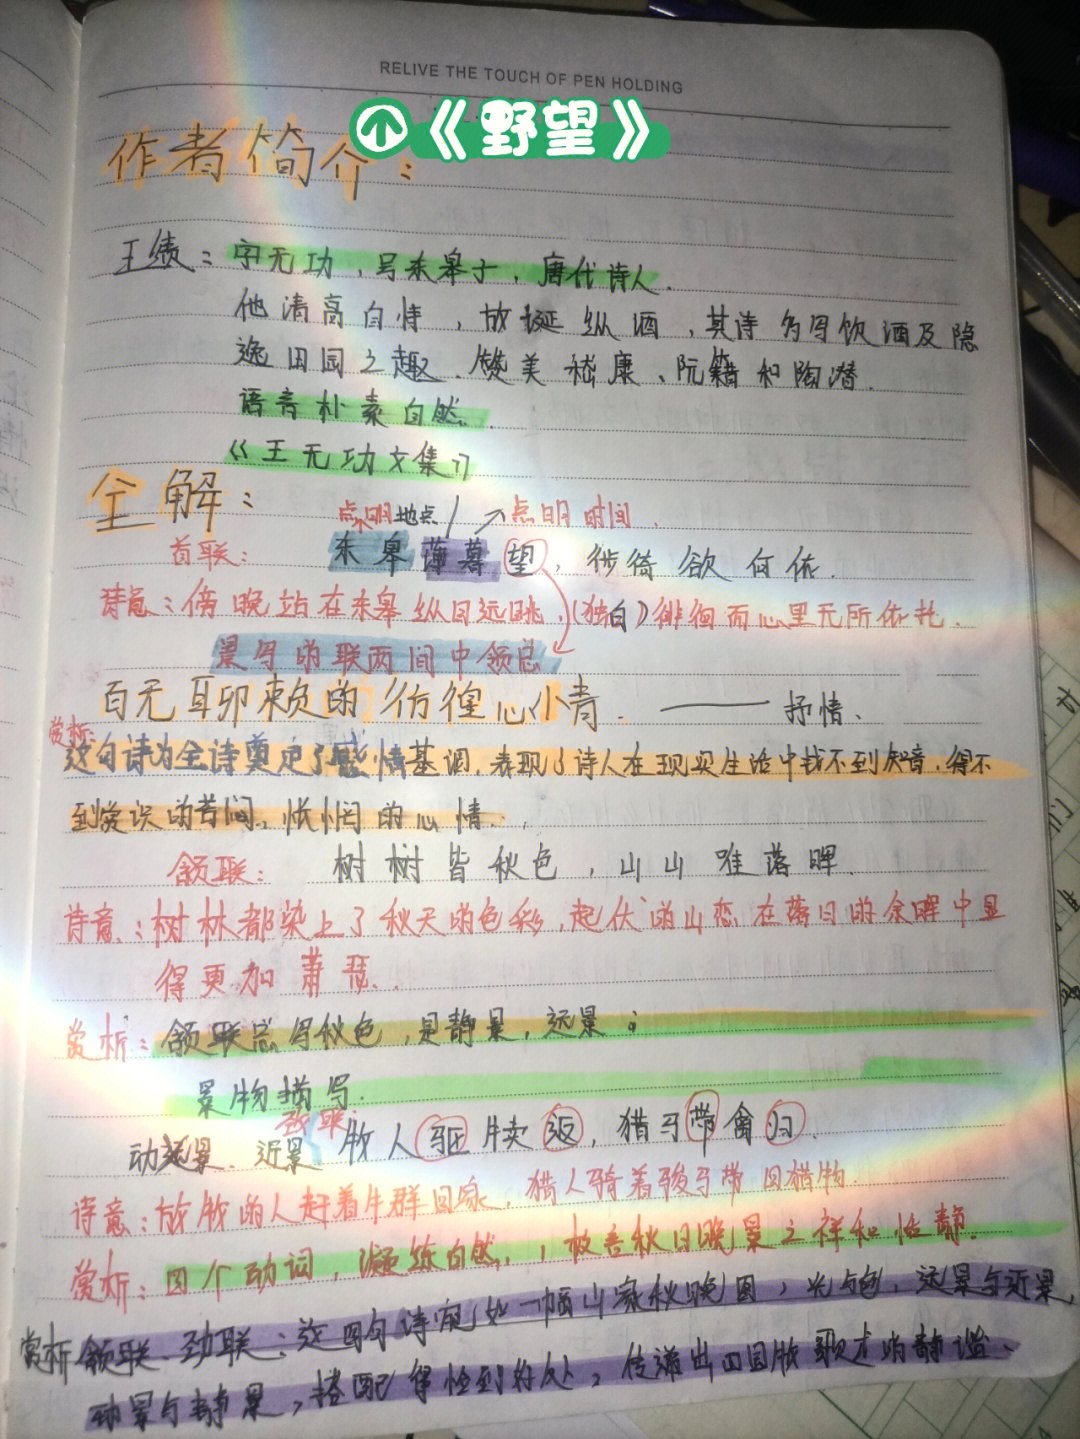 RELIVE THE TOUCH OF PEN HOLDING
《野望》
作者简介：
王绩：字无功，号东皋子，唐代诗人.
他清高自恃，放诞纵酒，其诗多写饮酒及隐
逸田园之趣.赞美嵇康、阮籍和陶潜.
语言朴素自然.
《王无功文集》
全解：
点明地点 点明时间.
首联: 东皋薄暮望，徙倚欲何依.
诗意：傍晚站在东皋纵目远眺，(独白)徘徊而心里无所依托.
景写的联两间中领总
百无聊赖的彷徨心情. ——抒情、
赏析:
这句诗为全诗奠定了感情基调，表现了诗人在现实生活中找不到知音.得不
到赏识的苦闷、怅惘的心情.
颔联: 树树皆秋色，山山唯落晖.
诗意：树林都染上了秋天的色彩，起伏的山恋在落日的余晖中显
得更加萧瑟.
赏析：颔联总写秋色，是静景，远景；
景物描写.
动景.近景 牧人驱犊返，猎马带禽归.
诗意：放牧的人赶着牛群回家，猎人骑着骏马带回猎物.
赏析：四个动词，凝练自然，秋日晚景之祥和恬静.
赏析 颔联、劲联：这四句诗宛如一幅山家秋晚图，光与色，远景与近景，
动景与静景，搭配得恰到好处，传递出田园牧歌才的静谧、